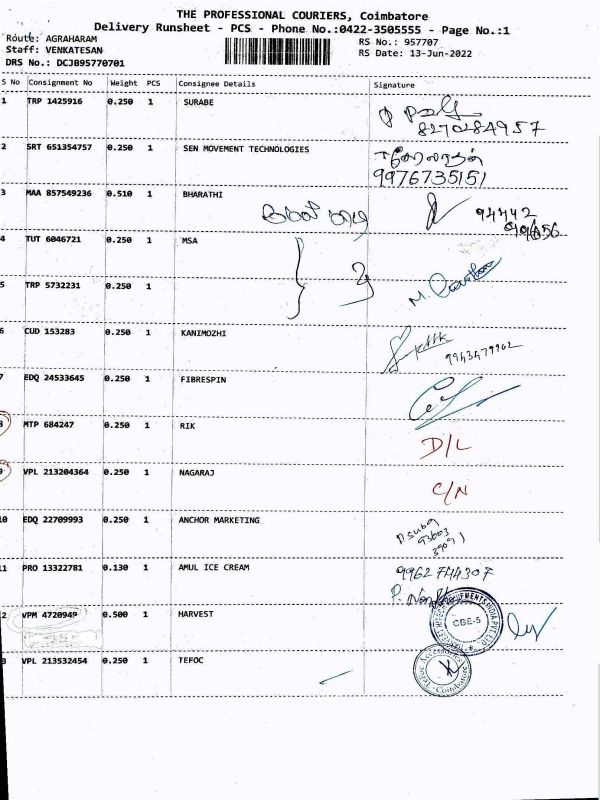 THE PROFESSIONAL COURIERS, Coimbatore
Delivery Runsheet - PCS - Phone No.:0422-3505555 - Page No.:1
Route: AGRAHARAM RS No.: 957707
Staff: VENKATESAN RS Date: 13-Jun-2022
DRS No.: DCJB95770701
S No Consignment No Weight PCS Consignee Details Signature
1 TRP 1425916 0.250 1 SURABE
8270284957
2 SRT 651354757 0.250 1 SEN MOVEMENT TECHNOLOGIES
9976735151
3 MAA 857549236 0.510 1 BHARATHI 94442
4 TUT 6046721 0.250 1 MSA
5 TRP 5732231 0.250 1
6 CUD 153283 0.250 1 KANIMOZHI
7 EDQ 24533645 0.250 1 FIBRESPIN
8 MTP 684247 0.250 1 RIK D/L
9 VPL 213204364 0.250 1 NAGARAJ C/N
10 EDQ 22709993 0.250 1 ANCHOR MARKETING
11 PRO 13322781 0.130 1 AMUL ICE CREAM
2 VPM 4720949 0.500 1 HARVEST CBE-5
3 VPL 213532454 0.250 1 TEFOC